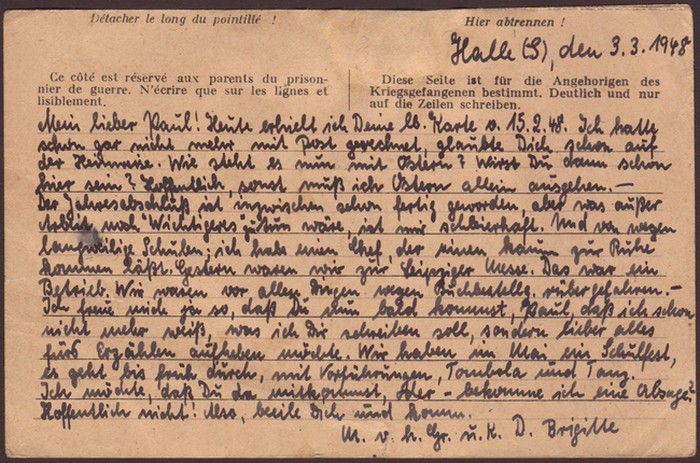 Détacher le long du pointillé !
Hier abtrennen !
Halle (S), den 3.3.1948
Ce côté est réservé aux parents du prison-
nier de guerre. N'écrire que sur les lignes et
lisiblement.
Diese Seite ist für die Angehorigen des
Kriegsgefangenen bestimmt. Deutlich und nur
auf die Zeilen schreiben.
Mein lieber Paul! Heute erhielt ich Deine lb. Karte v. 15.2.48. Ich hatte
schon gar nicht mehr mit Post gerechnet, glaubte Dich schon auf
der Heimreise. Wie steht es nun mit Ostern? Wirst Du dann schon
hier sein? Hoffentlich, sonst muß ich Ostern allein ausgehen. —
Der Jahresabschluß ist inzwischen schon fertig geworden, aber was außer
Arbeit noch "Wichtigeres" zu tun wäre, ist mir schleierhaft. Und von wegen
langweilige Schulen; ich hab einen Chef, der einen kaum zur Ruhe
kommen läßt. Gestern waren wir zur Leipziger Messe. Das war ein
Betrieb. Wir waren vor allen Dingen wegen Buchbestellg. rübergefahren. —
Ich freue mich ja so, daß Du nun bald kommst, Paul, daß ich schon
nicht mehr weiß, was ich Dir schreiben soll, sondern lieber alles
fürs Erzählen aufheben möchte. Wir haben im Mai ein Schulfest,
es geht bis früh durch, mit Vorführungen, Tombola und Tanz.
Ich möchte, daß Du da mitkommst, oder – bekomme ich eine Absage?
Hoffentlich nicht! Also, beeile Dich und komm.
M. v. h. Gr. u. K. D. Brigitte